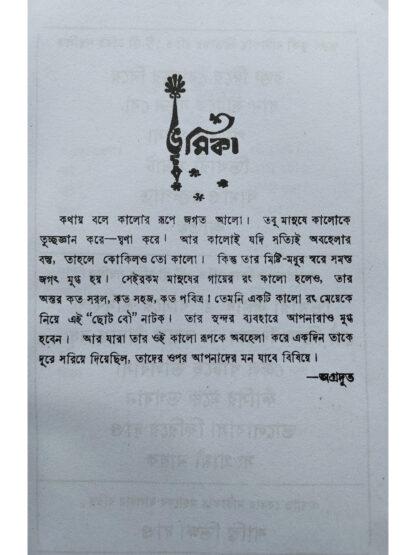 ভূমিকা
কথায় বলে কালোর রূপে জগত আলো। তবু মানুষে কালোকে
তুচ্ছজ্ঞান করে—ঘৃণা করে! আর কালোই যদি সত্যিই অবহেলার
বস্তু, তাহলে কোকিলও তো কালো। কিন্তু তার মিষ্টি-মধুর স্বরে সমস্ত
জগৎ মুগ্ধ হয়। সেইরকম মানুষের গায়ের রং কালো হলেও, তার
অন্তর কত সরল, কত সহজ, কত পবিত্র! তেমনি একটি কালো রং মেয়েকে
নিয়ে এই “ছোট বৌ” নাটক। তার সুন্দর ব্যবহারে আপনারাও মুগ্ধ
হবেন। আর যারা তার ওই কালো রূপকে অবহেলা করে একদিন তাকে
দূরে সরিয়ে দিয়েছিল, তাদের ওপর আপনাদের মন যাবে বিষিয়ে।
—অগ্রদূত